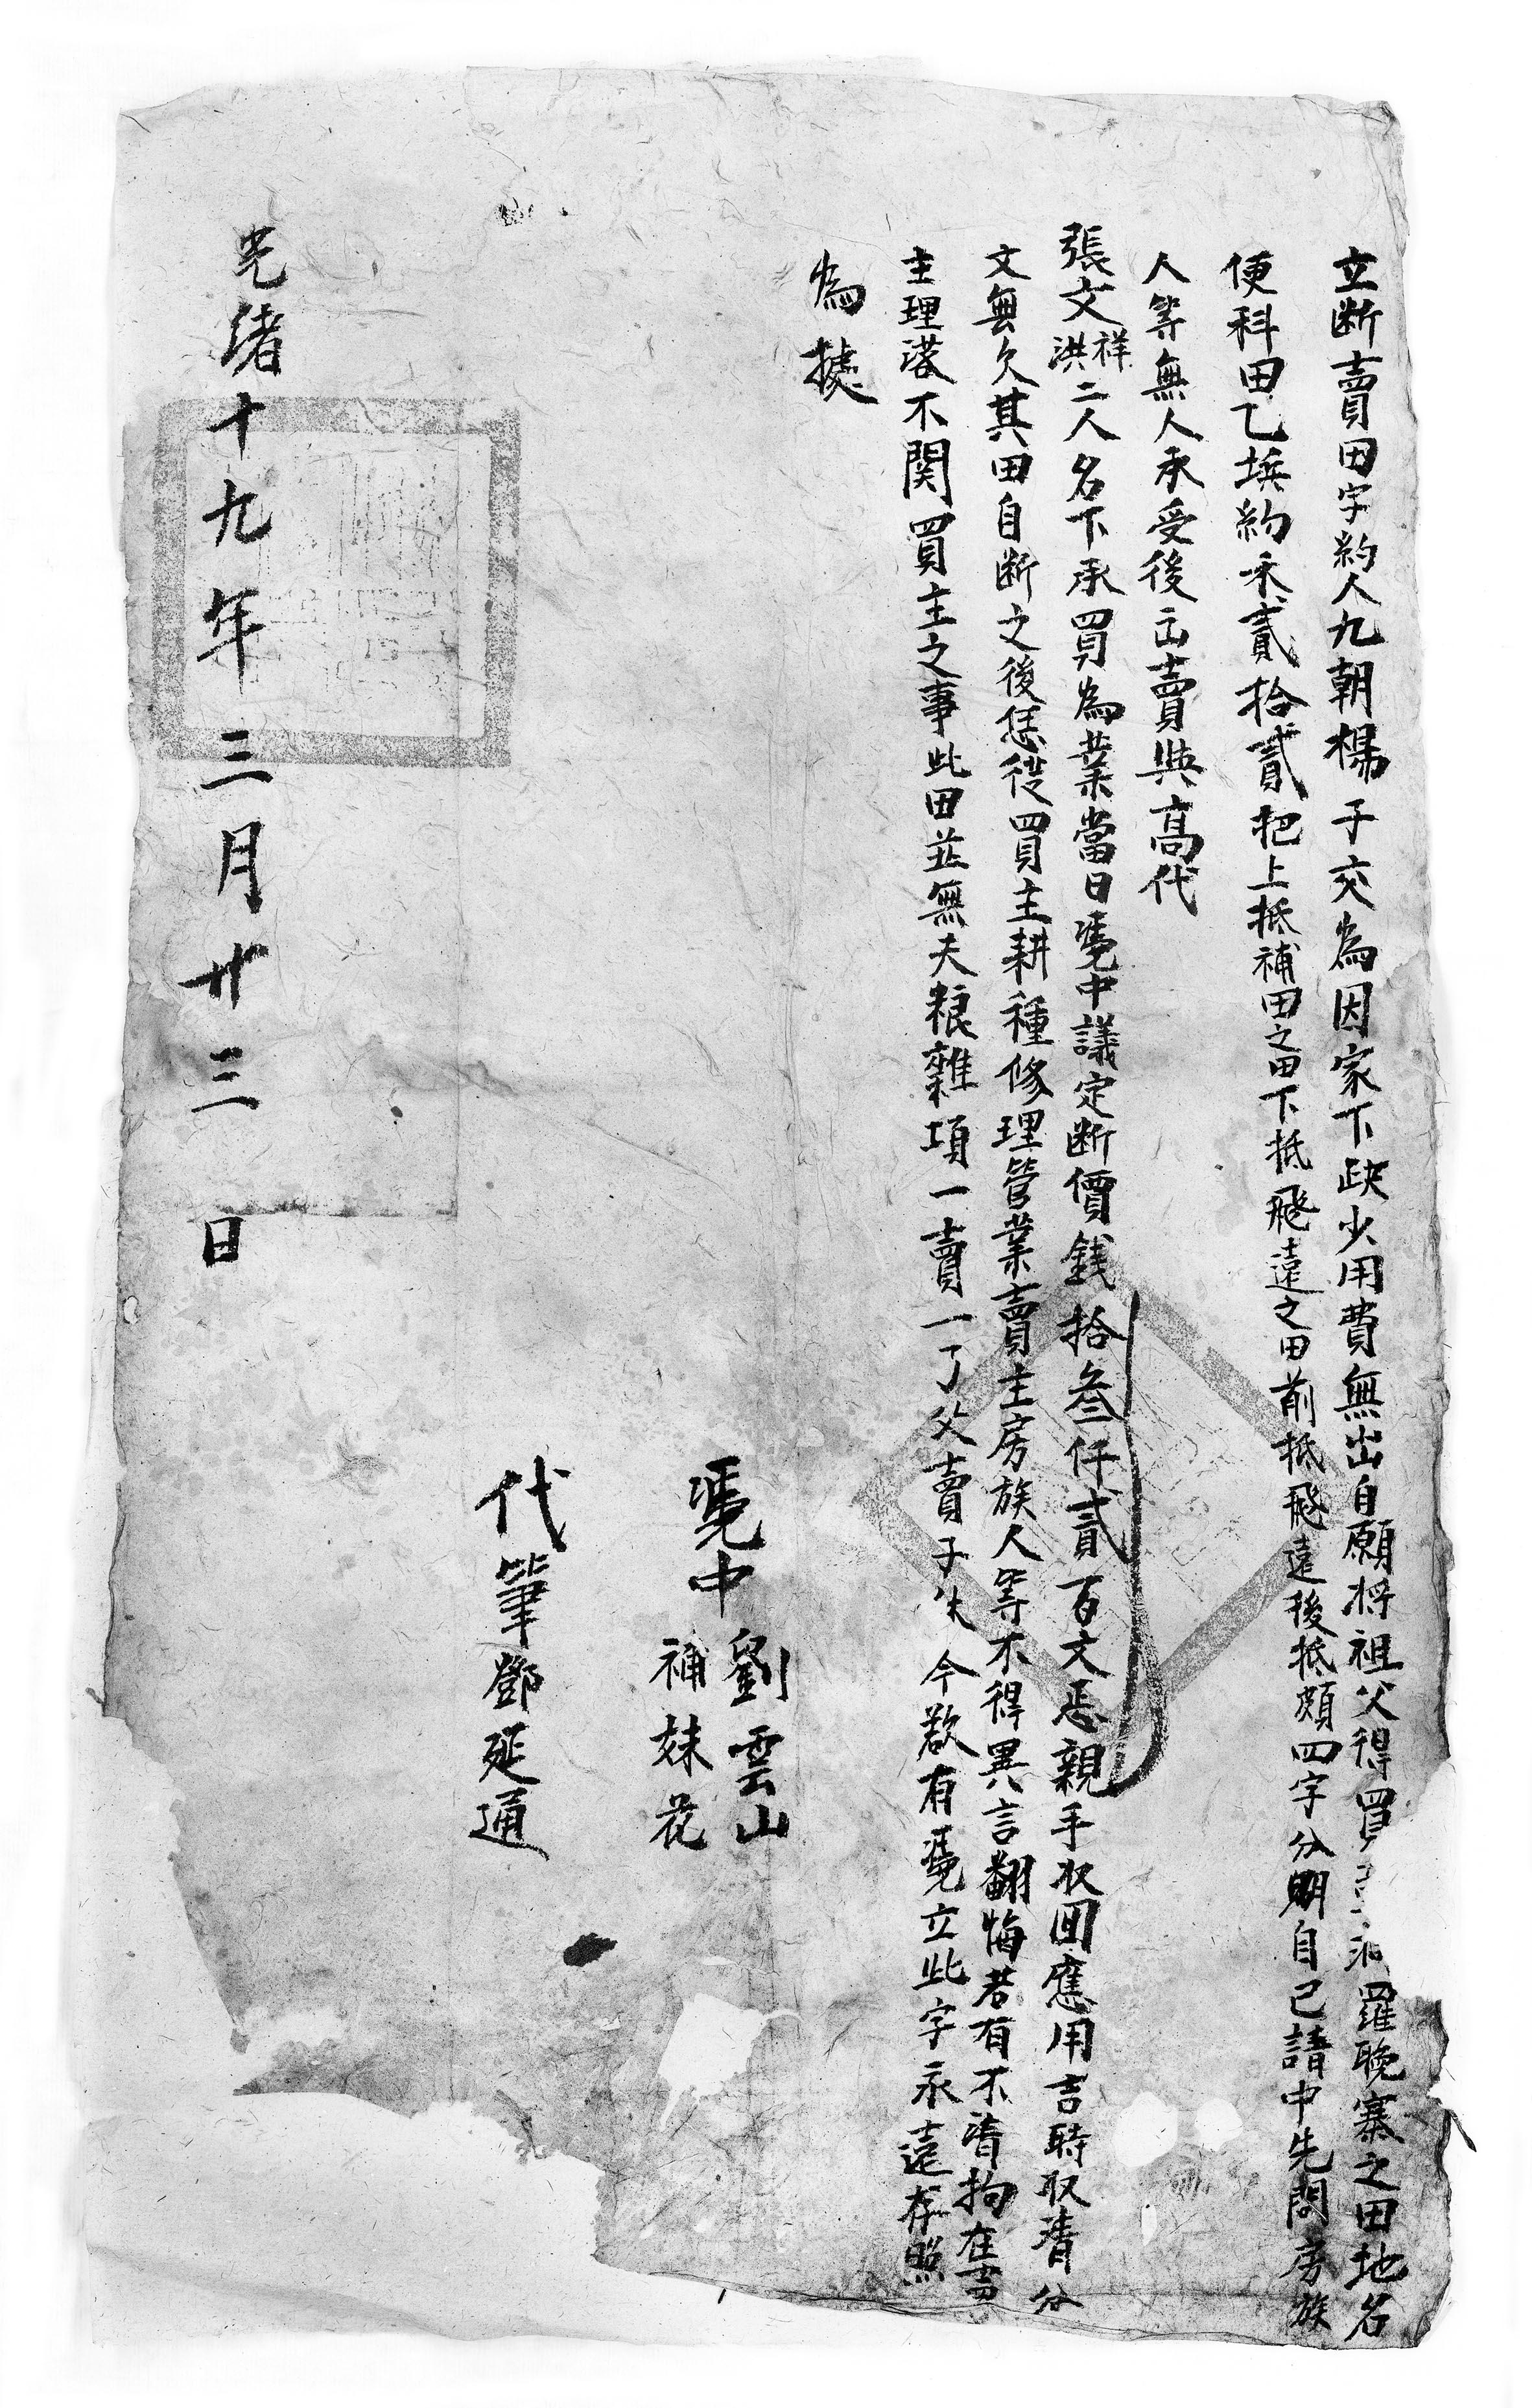 立断賣田字約人九朝楊子交為因家下缺少用費無出自願将祖父得買羅晚寨之田地名
便科田乙坵約禾貳拾貳把上抵補田之田下抵飛遠之田前抵飛遠後抵頗四字分明自己請中先問房族
人等無人承受後出賣與高代
張文祥洪二人名下承買為業當日凴中議定断價錢拾叁仟貳百文恁親手收囬應用言時収清分
文無欠其田自断之後恁從買主耕種修理管業賣主房族人等不得異言翻悔若有不清拘在賣
主理落不関買主之事此田並無夫粮雜項一賣一了父賣子休今欲有凴立此字永遠存照
為據
凴中劉雲山
補妹花
代筆鄧延通
光緒十九年三月廿三日